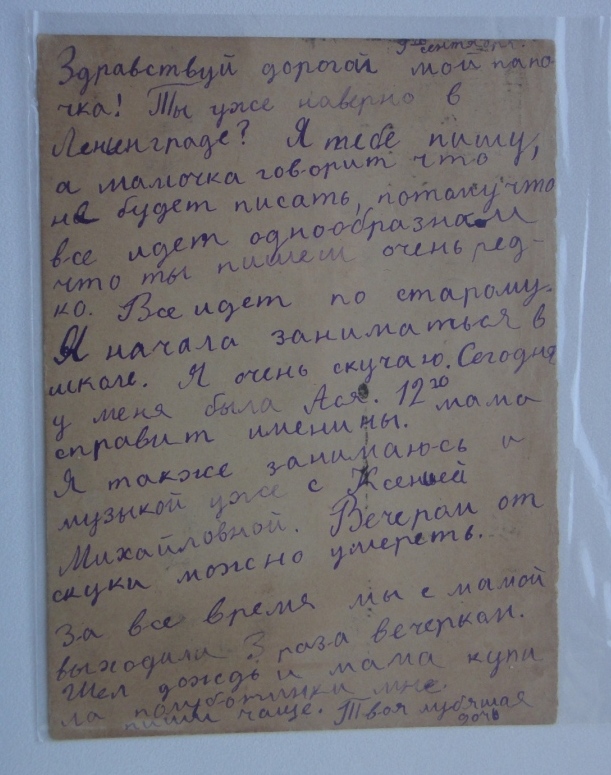 9го сентября.
Здравствуй дорогой мой папо-
чка! Ты уже наверно в
Ленинграде? Я тебе пишу,
а мамочка говорит что
не будет писать, потому что
все идет однообразно и
что ты пишем очень ред-
ко. Все идет по старому.
Я начала заниматься в
школе. Я очень скучаю. Сегодня
у меня была Ася. 12го мама
справит именины.
Я также занимаюсь и
музыкой уже с Ксенией
Михайловной. Вечерам от
скуки можно умереть.
За все время мы с мамой
выходили 3 раза вечерком.
Шел дождь и мама купи
ла полуботинки мне.
пиши чаще. Твоя любящая
дочь